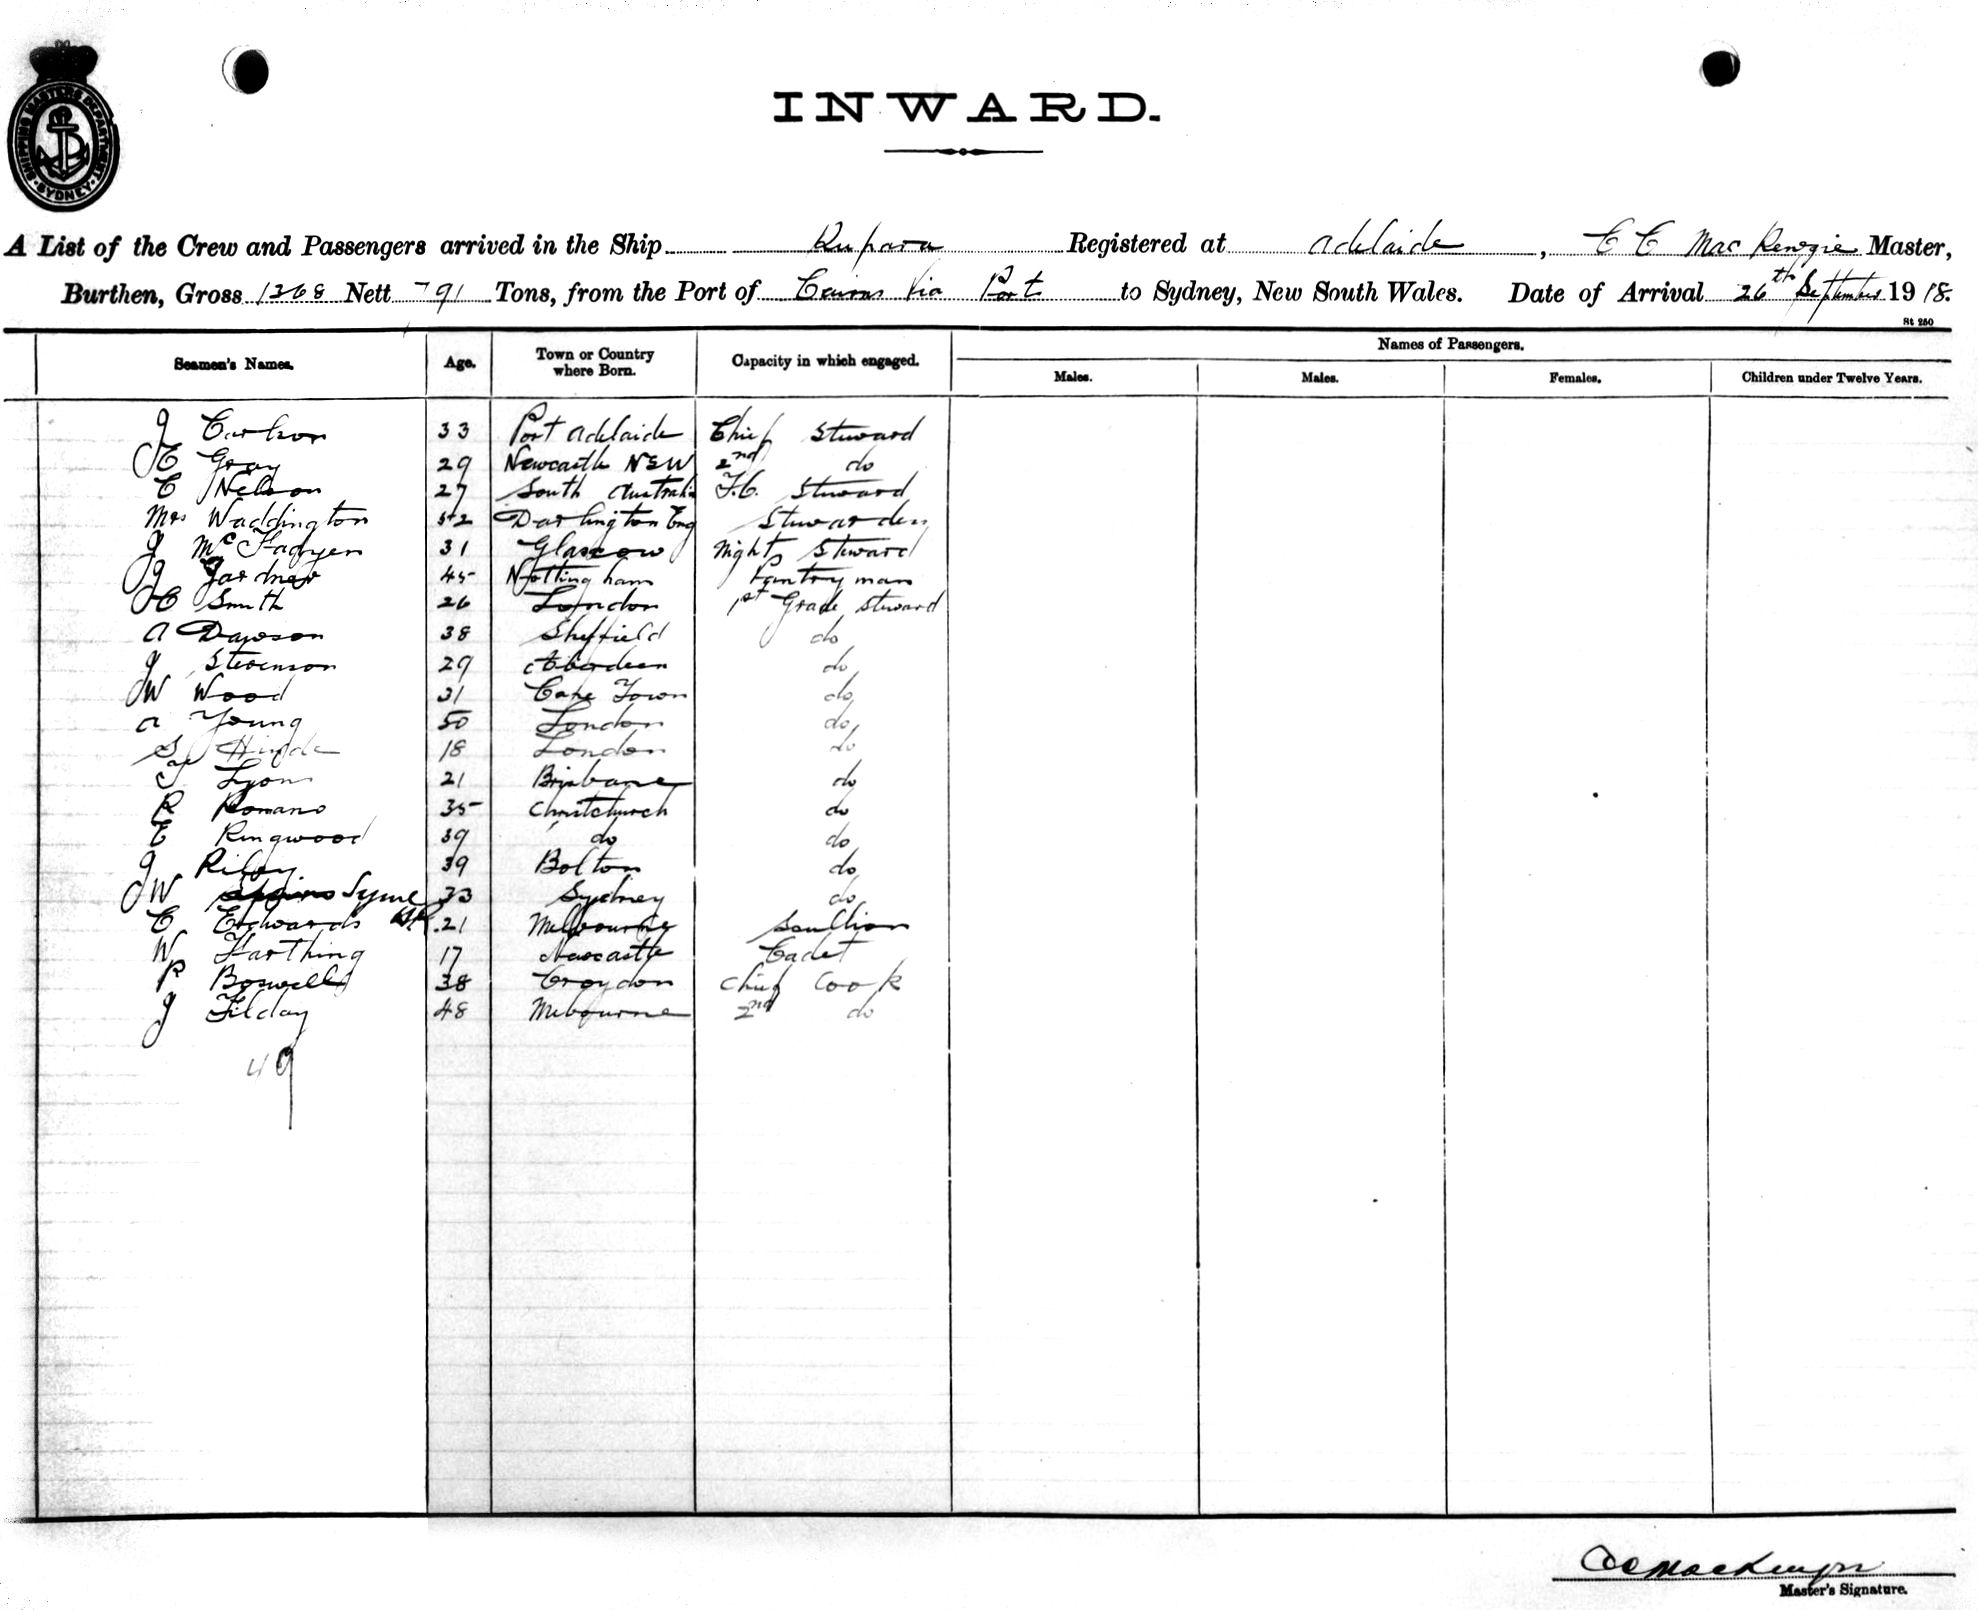 SHIPPING MASTERS DEPARTMENT SYDNEY
INWARD.
A List of the Crew and Passengers arrived in the Ship Rupara Registered at Adelaide, C C MacKenzie Master,
Burthen, Gross 1368 Nett 791 Tons, from the Port of Cairns Via Port to Sydney, New South Wales. Date of Arrival 26th September 1918.
St 250
Seamen's Names. Age. Town or Country where Born. Capacity in which engaged. Names of Passengers.
Males. Males. Females. Children under Twelve Years.
J Carlson 33 Port Adelaide Chief Steward
J E Gray 29 Newcastle NSW 2nd do
C Nelson 27 South Australia F.C. Steward
Mrs Waddington 52 Darlington Eng Stewardess
J McFadyen 31 Glascow Night Steward
J Gardner 45 Nottingham Pantryman
H C Smith 26 London 1st Grade Steward
A Dawson 38 Sheffield do
J Stevenson 29 Aberdeen do
J W Wood 31 Cape Town do
A Young 50 London do
S Hinde 18 London do
T Lyons 21 Brisbane do
R Romano 35 Christchurch do
E Ringwood 39 do do
J Riley 39 Bolton do
J W Syme 33 Sydney do
C Edwards 21 Melbourne Scullion
W Farthing 17 Newcastle Cadet
R Boswell 38 Croydon Chief Cook
J Filday 48 Melbourne 2nd do
49
C C MacKenzie
Master's Signature.